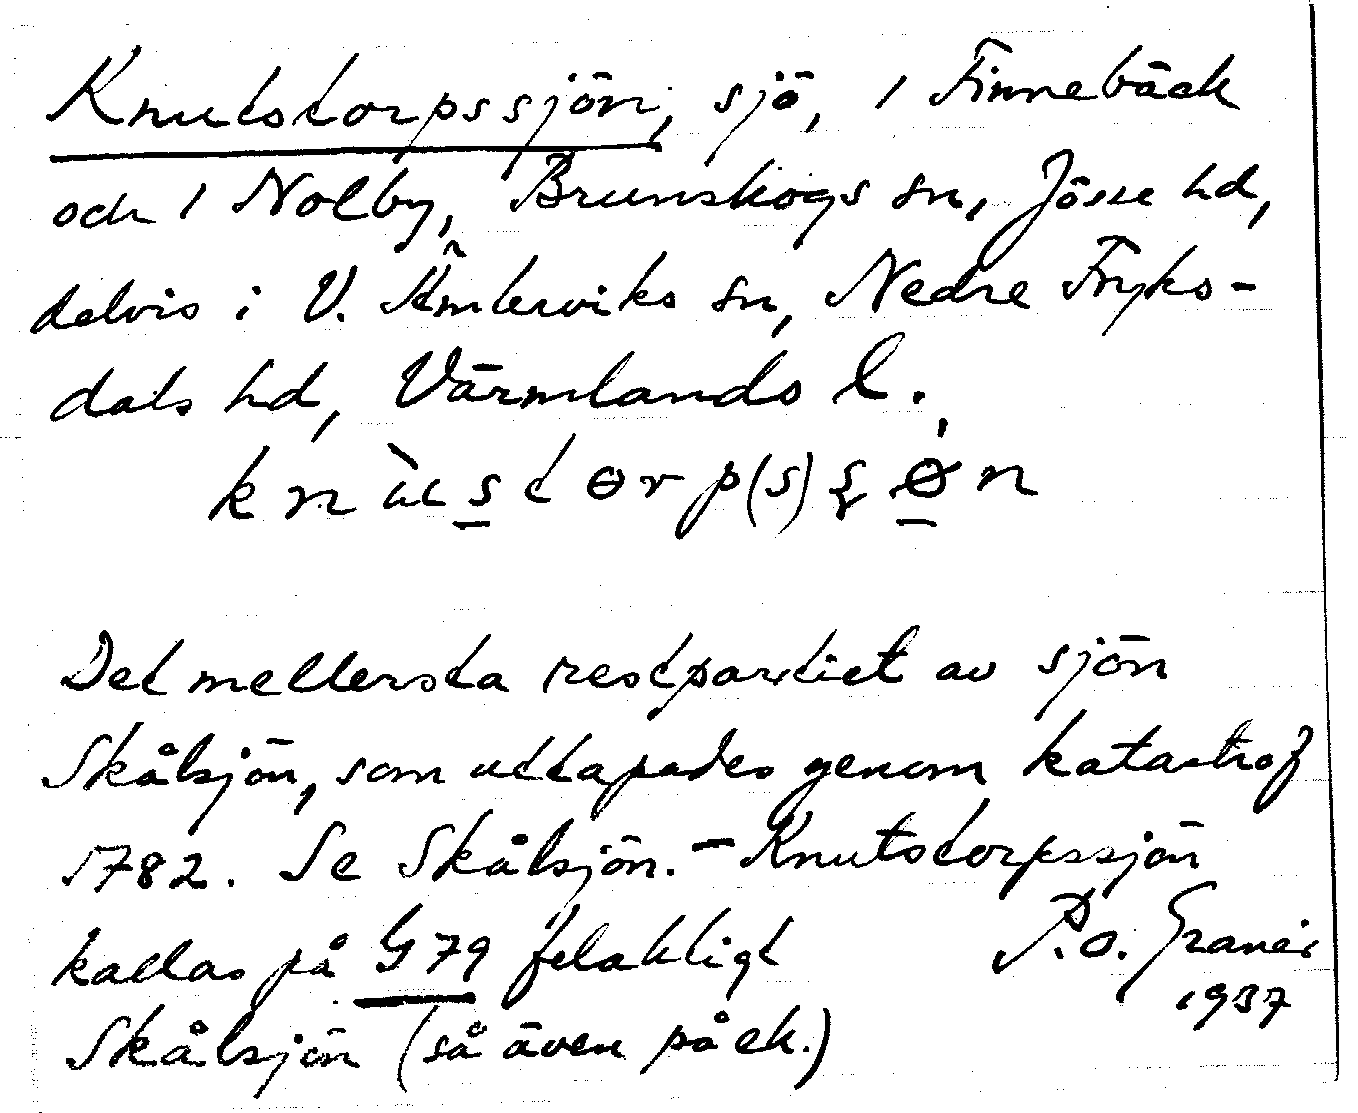 Knutstorpssjön, sjö, i Finnebäck
och i Nolby, Brunskogs sn, Jösse hd,
delvis i V. Ämterviks sn, Nedre Fryks-
dals hd, Värmlands l.
Det mellersta restpartiet av sjön
Skålsjön, som uttapades genom katastrof
1782. Se Skålsjön. – Knutstorpssjön
kallas på G79 felaktligt
Skålsjön (så även på ek.)
P.O. Graner
1937